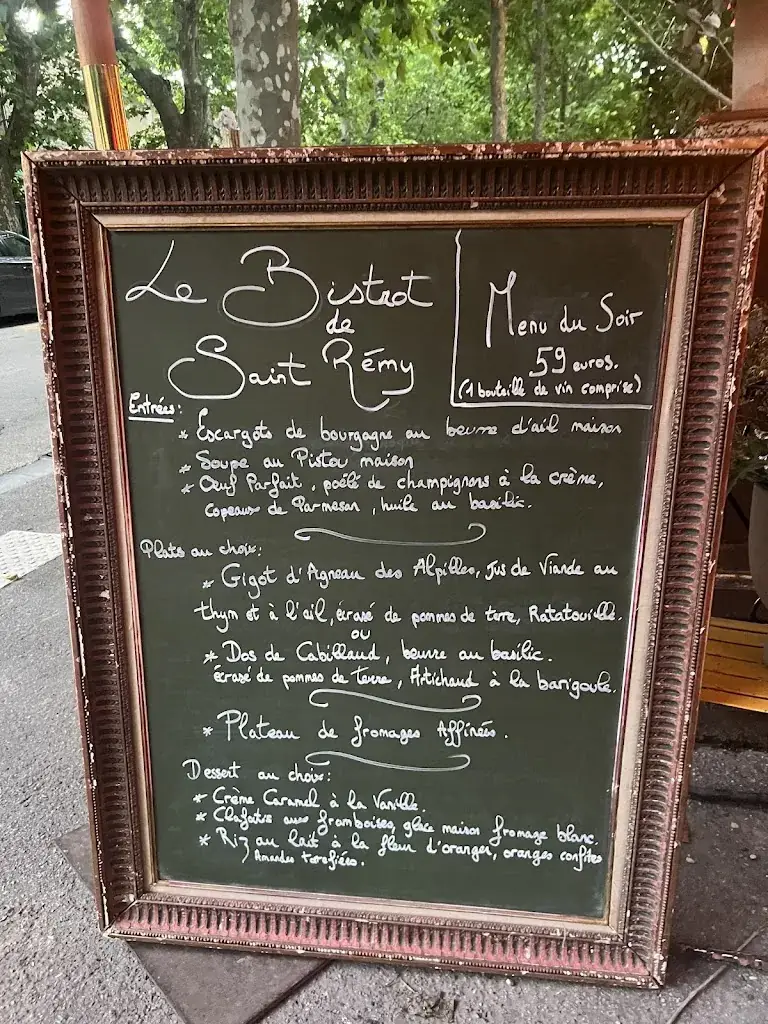 Le Bistrot
de
Saint Rémy
Menu du Soir
59 euros.
(1 bouteille de vin comprise)
Entrées:
* Escargots de bourgogne au beurre d'ail maison
* Soupe au Pistou maison
* Œuf Parfait, poêlé de champignons à la crème,
copeaux de Parmesan, huile au basilic.
Plats au choix:
* Gigot d'Agneau des Alpilles, Jus de Viande au
thym et à l'ail, écrasé de pommes de terre, Ratatouille.
ou
* Dos de Cabillaud, beurre au basilic.
écrasé de pommes de terre, Artichaud à la barigoule.
* Plateau de fromages Affinés.
Dessert au choix:
* Crème Caramel à la Vanille.
* Clafoutis aux framboises, glace maison fromage blanc.
* Riz au lait à la fleur d'oranger, oranges confites
Amandes torréfiées.